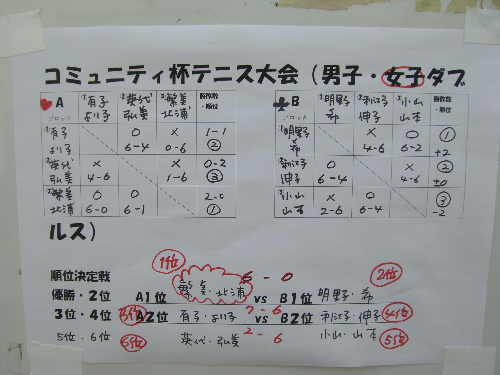 コミュニティ杯テニス大会（男子・女子ダブ
ルス）
A ブロック ①有子 より子 ②英代 弘美 ③繁美 北浦 勝敗数・順位
①有子 より子 ○ 6-4 × 0-6 1-1 ②
②英代 弘美 × 4-6 × 1-6 0-2 ③
③繁美 北浦 ○ 6-0 ○ 6-1 2-0 ①
B ブロック ①明里子 希 ②利江子 伸子 ③小山 山本 勝敗数・順位
①明里子 希 × 4-6 ○ 6-2 ① +2
②利江子 伸子 ○ 6-4 × 4-6 ② ±0
③小山 山本 × 2-6 ○ 6-4 ③ -2
順位決定戦
優勝・2位 1位 A1位 繁美・北浦 6-0 vs B1位 明里子・希 2位
3位・4位 3位 A2位 有子・より子 7-6 vs B2位 利江子・伸子 4位
5位・6位 6位 英代・弘美 2-6 小山・山本 5位